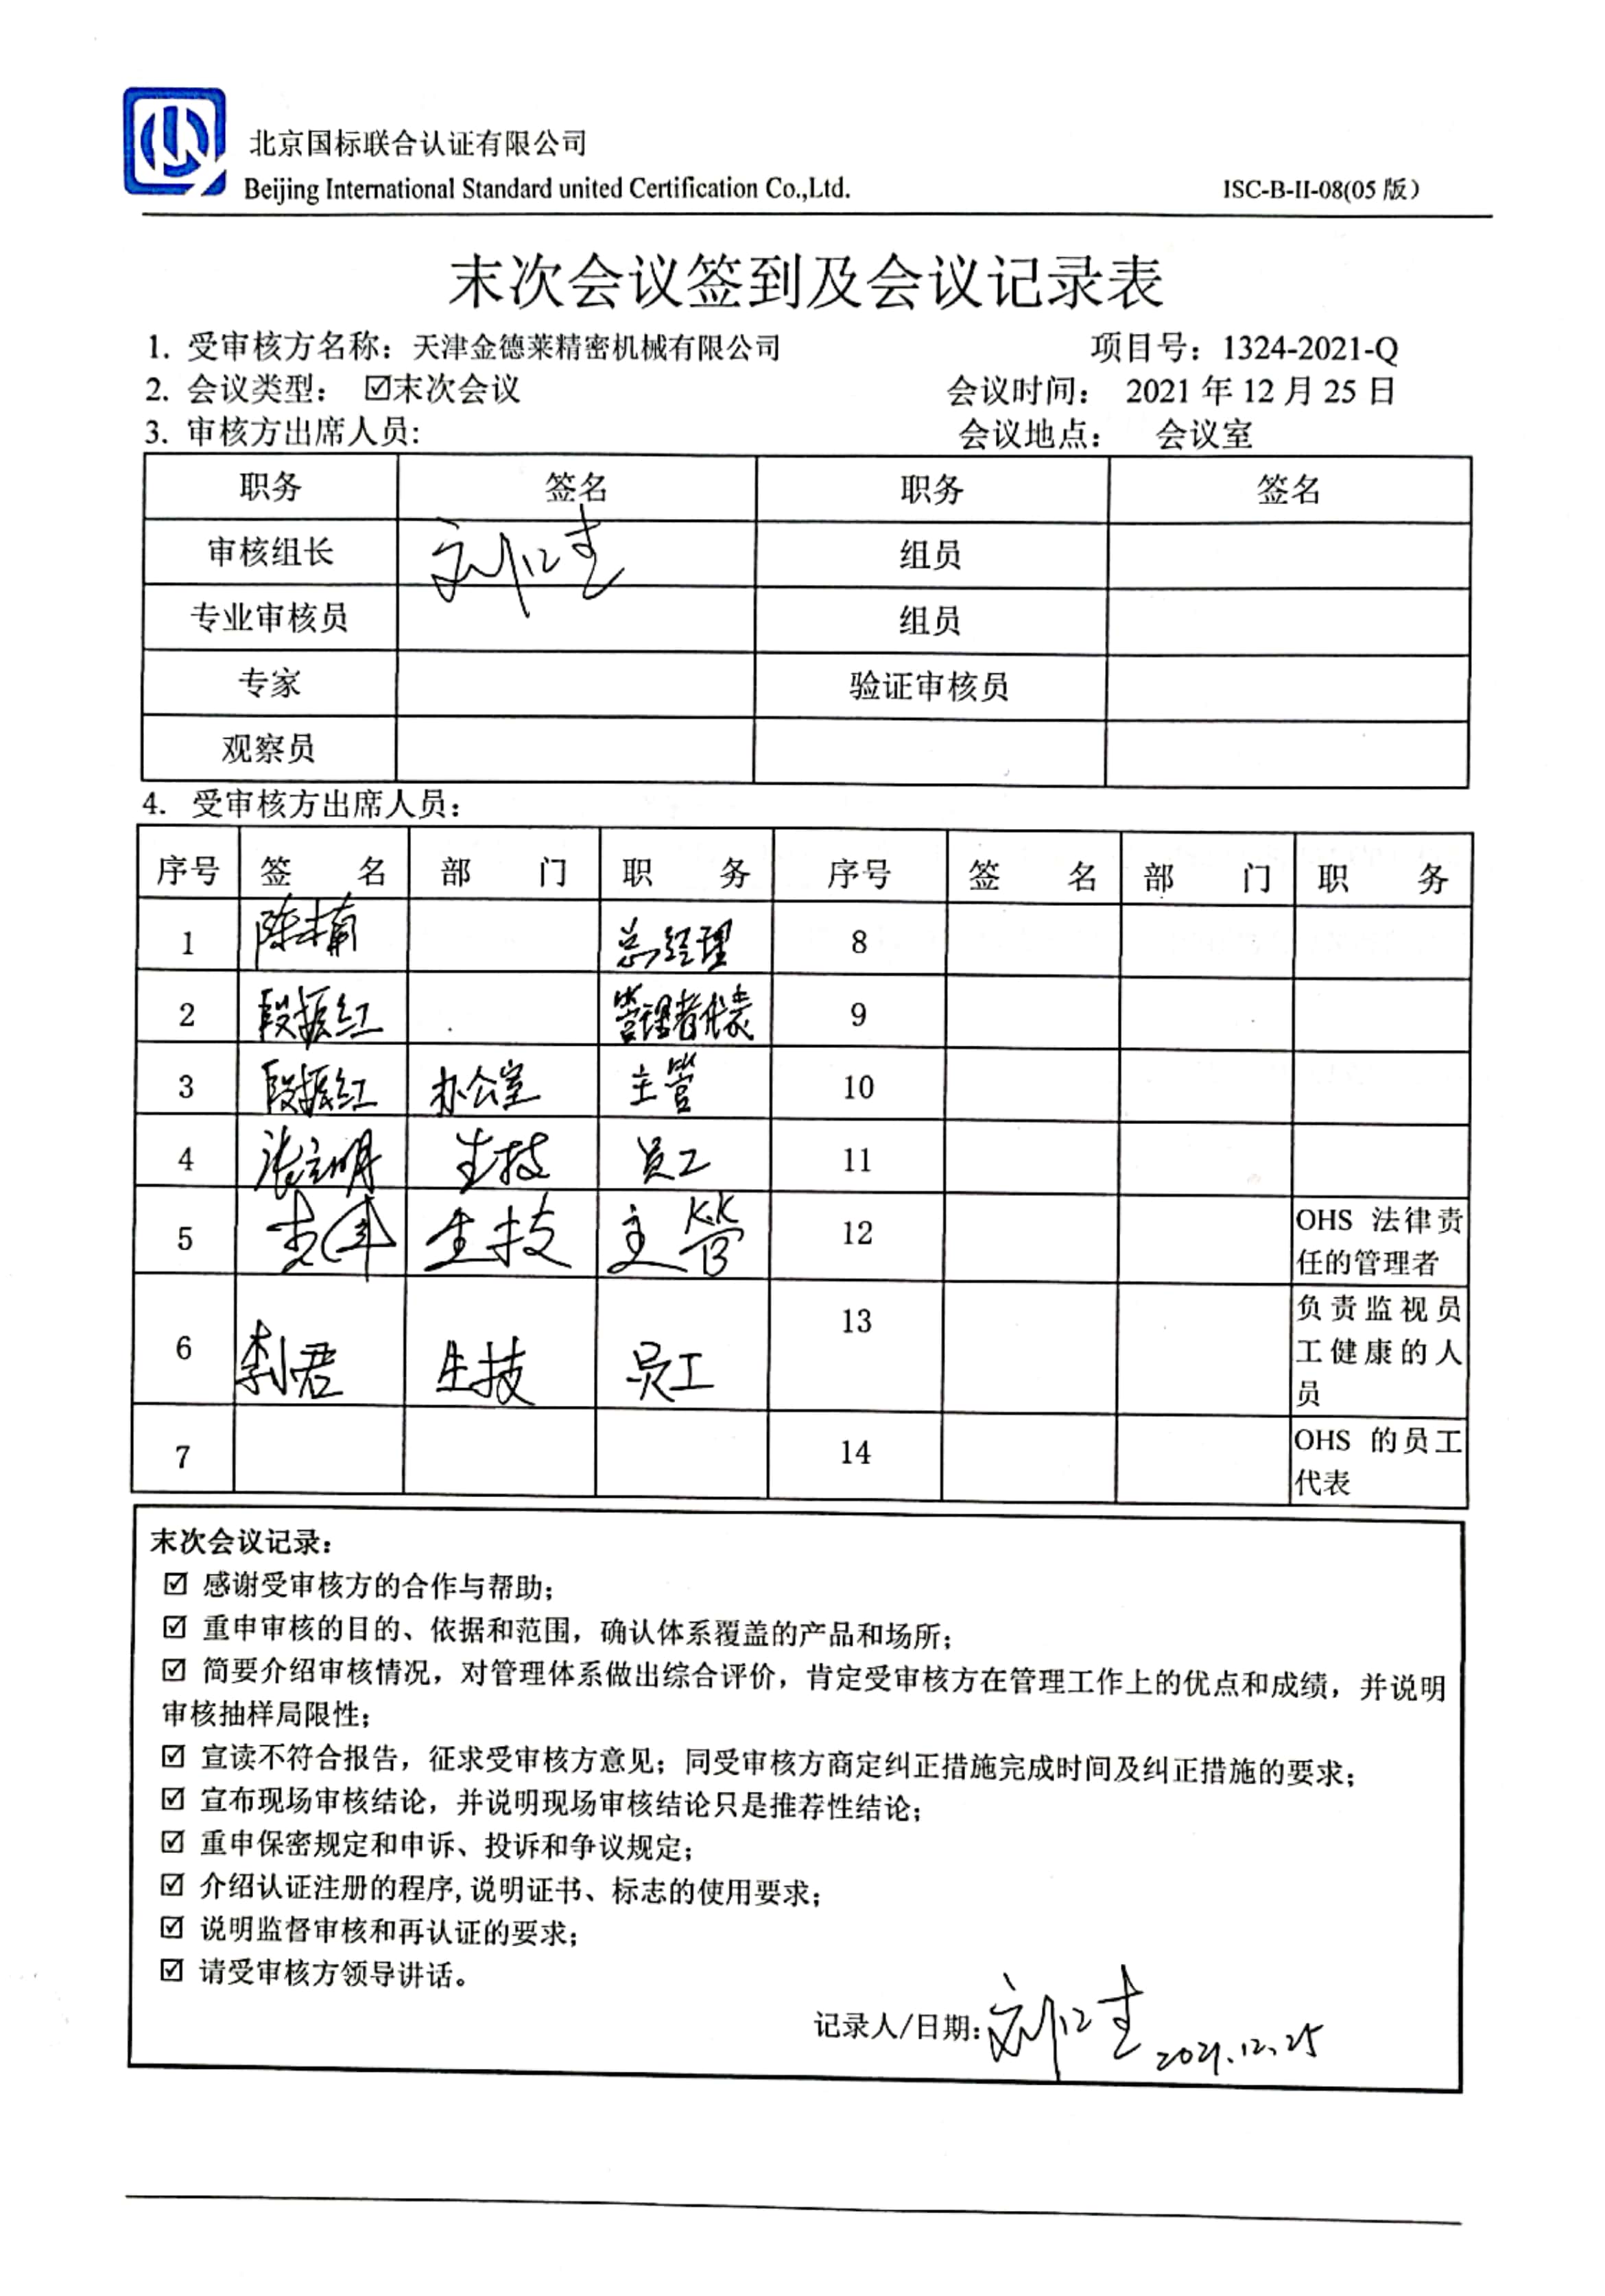 北京国标联合认证有限公司
Beijing International Standard united Certification Co.,Ltd.
ISC-B-II-08(05版)
末次会议签到及会议记录表
1. 受审核方名称：天津金德莱精密机械有限公司 项目号：1324-2021-Q
2. 会议类型： ☑末次会议 会议时间： 2021 年 12 月 25 日
3. 审核方出席人员: 会议地点： 会议室
职务 签名 职务 签名
审核组长 组员
专业审核员 组员
专家 验证审核员
观察员
4. 受审核方出席人员：
序号 签 名 部 门 职 务 序号 签 名 部 门 职 务
1 陈楠 总经理 8
2 段振红 管理者代表 9
3 段振红 办公室 主管 10
4 张立明 生技 员工 11
5 生技 主管 12 OHS 法律责
任的管理者
6 李君 生技 员工 13 负责监视员
工健康的人
员
7 14 OHS 的员工
代表
末次会议记录：
☑ 感谢受审核方的合作与帮助；
☑ 重申审核的目的、依据和范围，确认体系覆盖的产品和场所；
☑ 简要介绍审核情况，对管理体系做出综合评价，肯定受审核方在管理工作上的优点和成绩，并说明
审核抽样局限性；
☑ 宣读不符合报告，征求受审核方意见；同受审核方商定纠正措施完成时间及纠正措施的要求；
☑ 宣布现场审核结论，并说明现场审核结论只是推荐性结论；
☑ 重申保密规定和申诉、投诉和争议规定；
☑ 介绍认证注册的程序,说明证书、标志的使用要求；
☑ 说明监督审核和再认证的要求；
☑ 请受审核方领导讲话。
记录人/日期: 2021.12.25